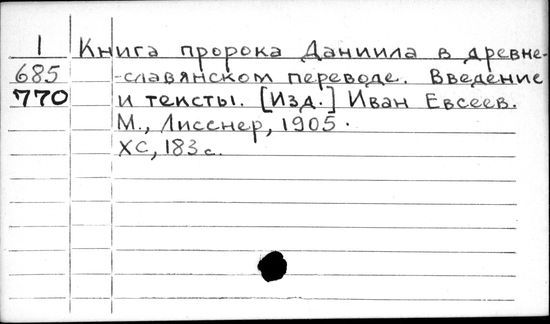 1 Книга пророка Даниила в древне-
685 -славянском переводе. Введение
770 и тексты. [Изд.] Иван Евсеев.
М., Лисснер, 1905.
XC, 183 с.